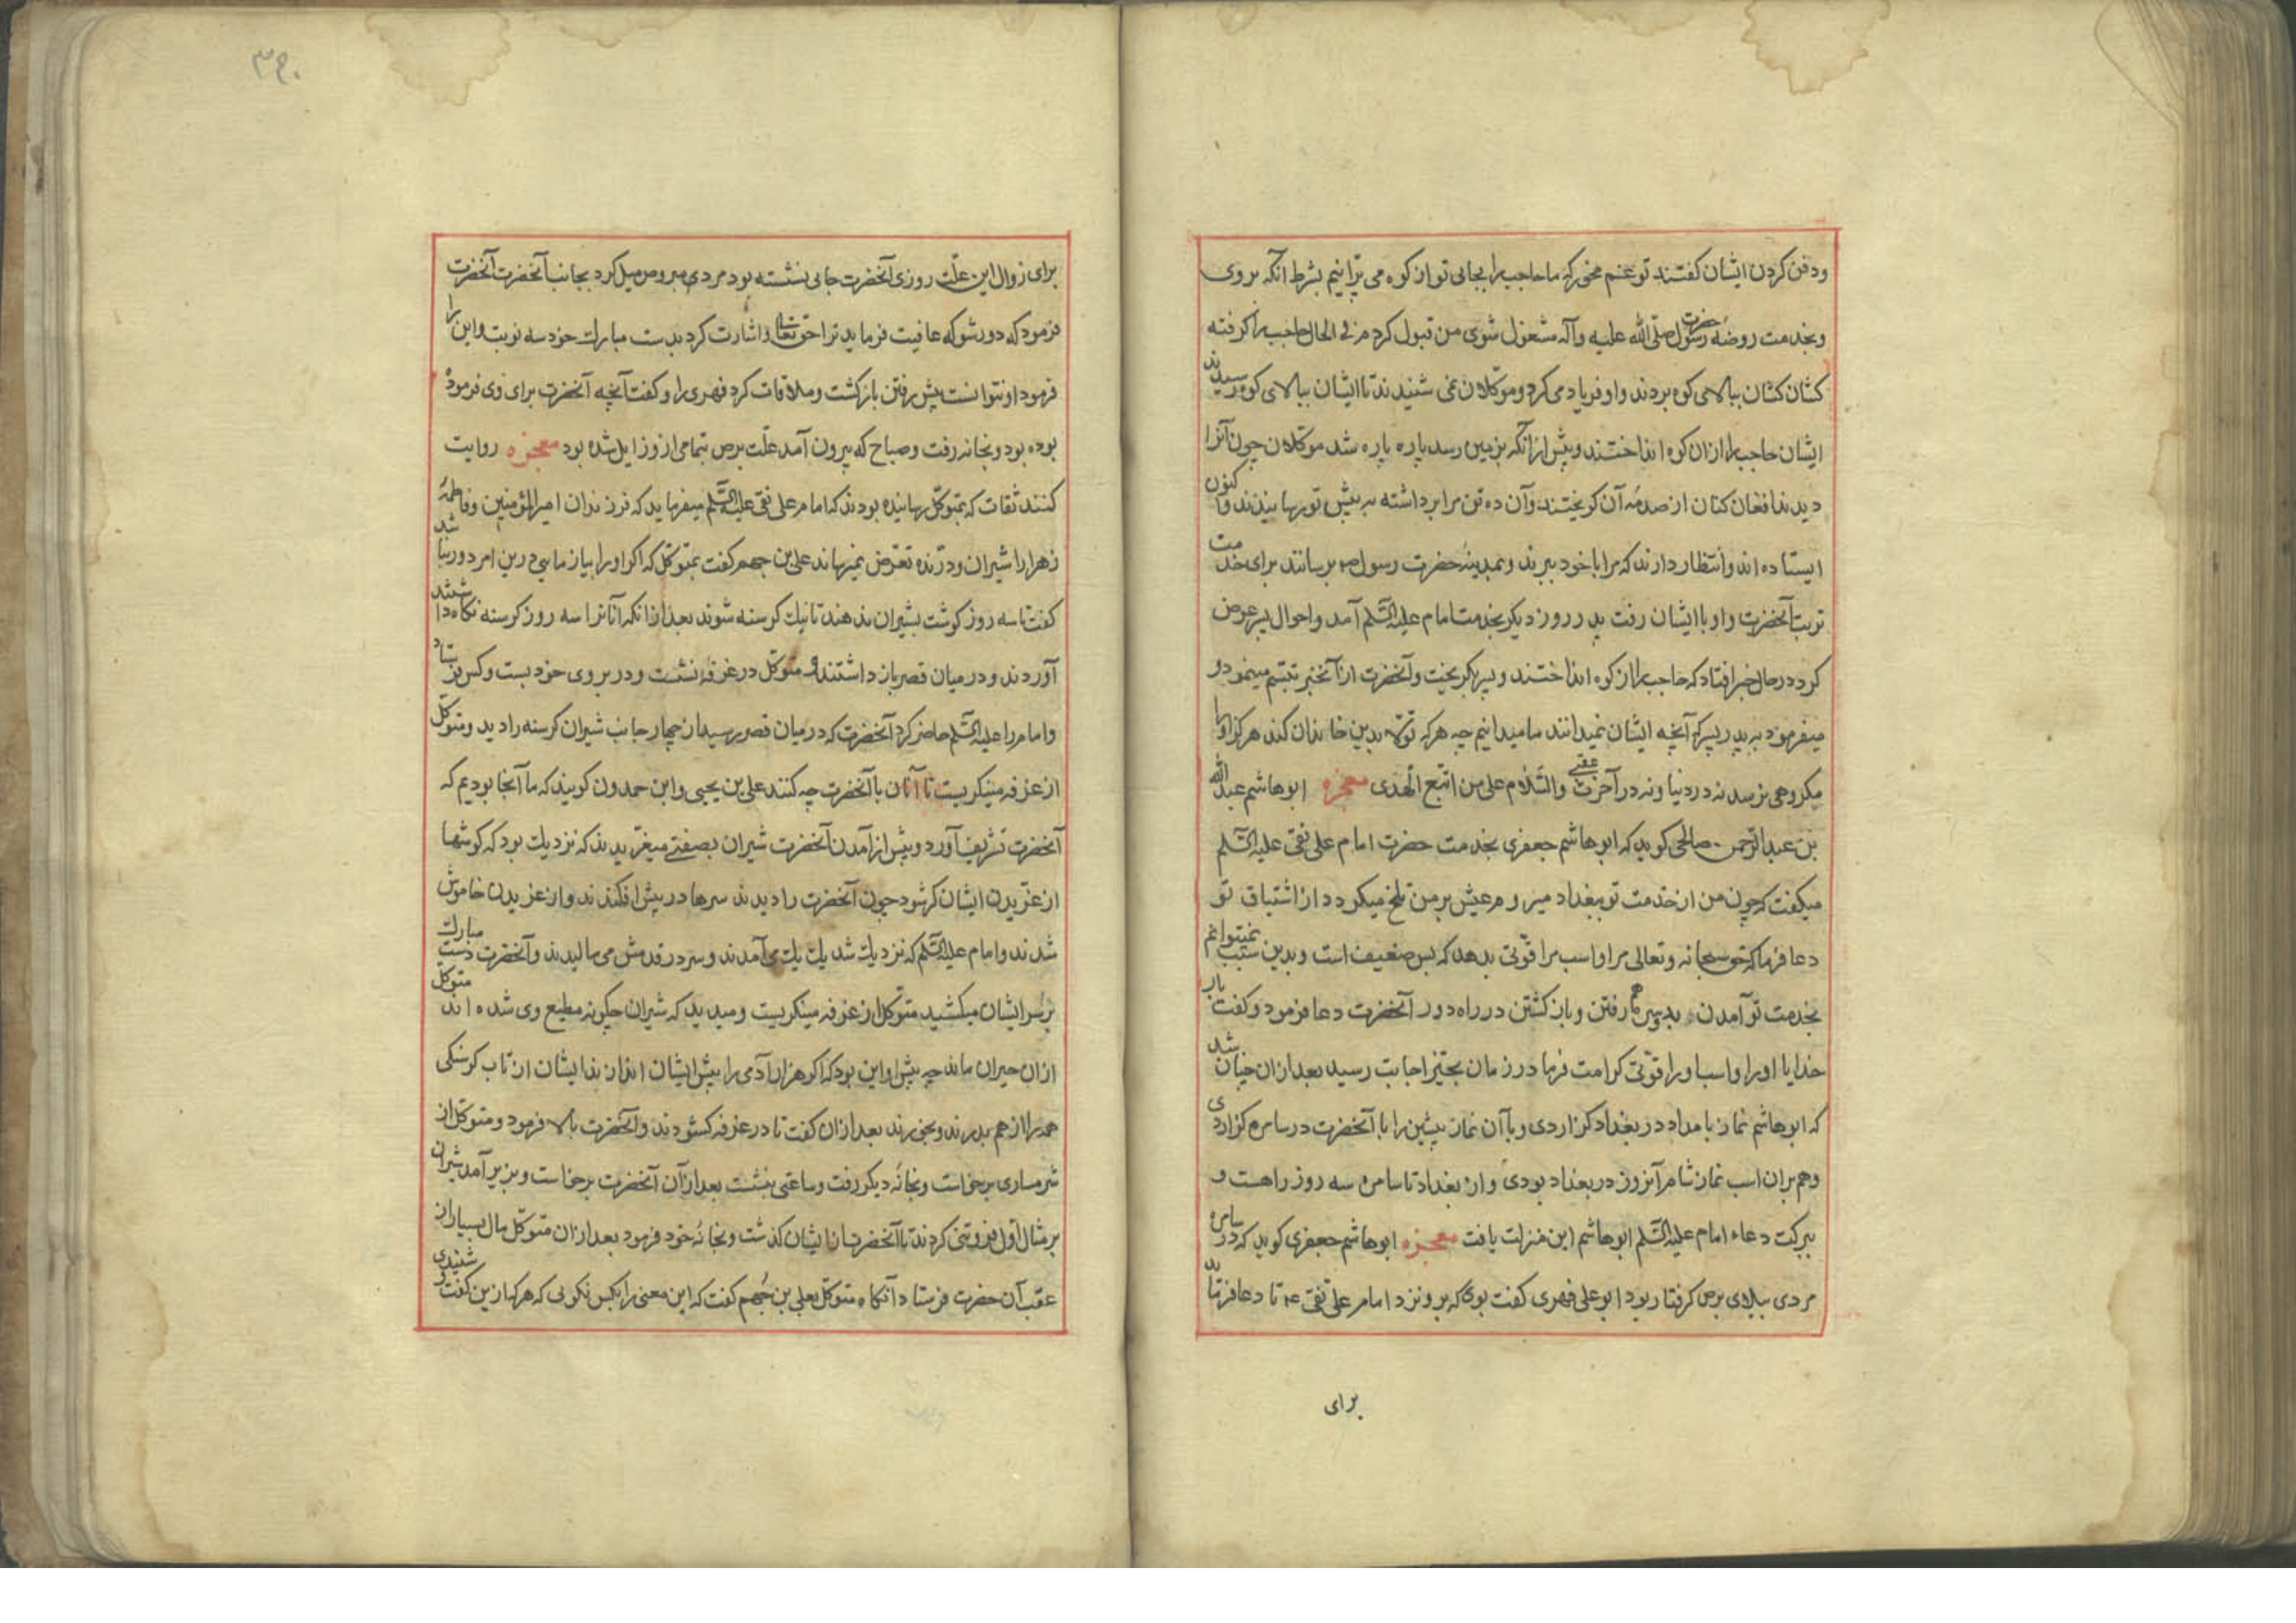 ودفن کردن ایشان گفتند تو غم مخور که ما حاجب را بجای تو از کوه می پرانیم بشرط آنکه بروی
وبخدمت روضهٔ حضرت رسول صلی الله علیه وآله مشغول شوی من قبول کردم در الحال حاجب را گرفته
کشان کشان ببالای کوه بردند واو فریاد می کرد وموکلان نمی شنیدند تا ایشان ببالای کوه رسیدند
ایشان حاجب را از ان کوه انداختند وپیش از آنکه بزمین رسد پاره پاره شد موکلان چون آنرا
دیدند افغان کنان از صدمهٔ آن گریختند وآن ده تن مرا برداشته به پیش تو رسانیدند واکنون
ایستاده اند وانتظار دارند که مرا با خود ببرند وبمدینهٔ حضرت رسول ص برسانند برای خدمت
تربت آنحضرت واو با ایشان رفت پدر روز دیگر بخدمت امام علیه السلم آمد واحوال پسر عرض
کرد در حال خبر افتاد که حاجب را از کوه انداختند وپسر بگریخت وآنحضرت از آنخبر تبسم مینمود و
میفرمود به پدر پسر که آنچه ایشان نمیدانند ما میدانیم چه هر که تولا بدین خاندان کند هرگز او را
مکروهی نرسد نه در دنیا ونه در آخرت عقبی والسلام علی من اتبع الهدی معجزه ابوهاشم عبدالله
بن عبدالرحمن صالحی گوید که ابوهاشم جعفری بخدمت حضرت امام علی نقی علیه السلم
میگفت که چون من از خدمت تو ببغداد میروم عیش بر من تلخ میگردد از اشتیاق تو
دعا فرما که حق سبحانه وتعالی مرا واسب مرا قوتی بدهد که بس ضعیف است وبدین سبب نمیتوانم
بخدمت تو آمدن بدرستی که رفتن وباز گشتن در راه دور آنحضرت دعا فرمود وگفت بار
خدایا او را واسب او را قوتی کرامت فرما در زمان بحیز اجابت رسید بعد از ان چنان شد
که ابوهاشم نماز بامداد در بغداد گزاردی وبا آن نماز پیشین را با آنحضرت در سامره گزاردی
وهم بران اسب نماز شام آنروز در بغداد بودی واز بغداد تا سامره سه روز راهست و
ببرکت دعاء امام علیه السلم ابوهاشم این منزلت یافت معجزه ابوهاشم جعفری گوید که در سامره
مردی ببلای برص گرفتار بود ابو علی فهری گفت بوی که برو نزد امام علی نقی ع تا دعا فرماید
برای
برای زوال این علت روزی آنحضرت جایی نشسته بود مردی مبروص میل کرد بجانب آنحضرت آنحضرت
فرمود که دور شو که عافیت فرماید ترا حق تعالی واشارت کرد بدست مبارک خود سه نوبت واین را
فرمود او نتوانست پیش رفتن بازگشت وملاقات کرد فهری را وگفت آنچه آنحضرت برای وی فرموده
بوده بود وبخانه رفت وصباح که بیرون آمد علت برص بتمامی از وزایل شده بود معجزه روایت
کنند ثقات که بمتوکل رسانیده بودند که امام علی نقی علیه السلم میفرماید که فرزندان امیرالمؤمنین وفاطمهٔ
زهرا را شیران ودرنده تعرض نمیرساند علی بن جهم گفت بمتوکل که اگر او را بیازمایی درین امر دور نباشد
گفت تا سه روز گوشت بشیران ندهند تا نیک گرسنه شوند بعد از انکه آنانرا سه روز گرسنه نگاه داشتند
آوردند ودر میان قصر باز داشتند ومتوکل در غرفه نشست ودر بروی خود بست وکس فرستاد
وامام را علیه السلم حاضر کرد آنحضرت که در میان قصر رسید از چهار جانب شیران گرسنه را دید ومتوکل
از غرفه مینگریست تا آنان با آنحضرت چه کنند علی بن یحیی وابن حمدون گویند که ما آنجا بودیم که
آنحضرت تشریف آورد وپیش از آمدن آنحضرت شیران بصفتی میغریدند که نزدیک بود که گوشها
از غریدن ایشان کر شود چون آنحضرت را دیدند سرها در پیش افکندند واز غریدن خاموش
شدند وامام علیه السلم که نزدیک شد یک یک می آمدند وسر در قدمش می مالیدند وآنحضرت دست مبارک
بر سر ایشان میکشید متوکل از غرفه مینگریست ومیدید که شیران چگونه مطیع وی شده اند متوکل
از ان حیران ماند چه پیش او این بود که اگر هزار آدمی را پیش ایشان اندازند ایشان از تاب گرسنگی
همه را از هم بدرند وبخورند بعد از ان گفت تا در غرفه گشودند وآنحضرت بالا فرمود ومتوکل از
شرمساری برخاست وبخانهٔ دیگر رفت وساعتی بنشست بعد از آن آنحضرت برخاست وبزیر آمد شیران
بر مثال اول فروتنی کردند تا آنحضرت از ایشان گذشت وبخانهٔ خود فرمود بعد از ان متوکل مال بسیار از
عقب آن حضرت فرستاد آنگاه متوکل بعلی بن جهم گفت که این معنی را بکس نگویی که هر که از این گفت و شنیدی